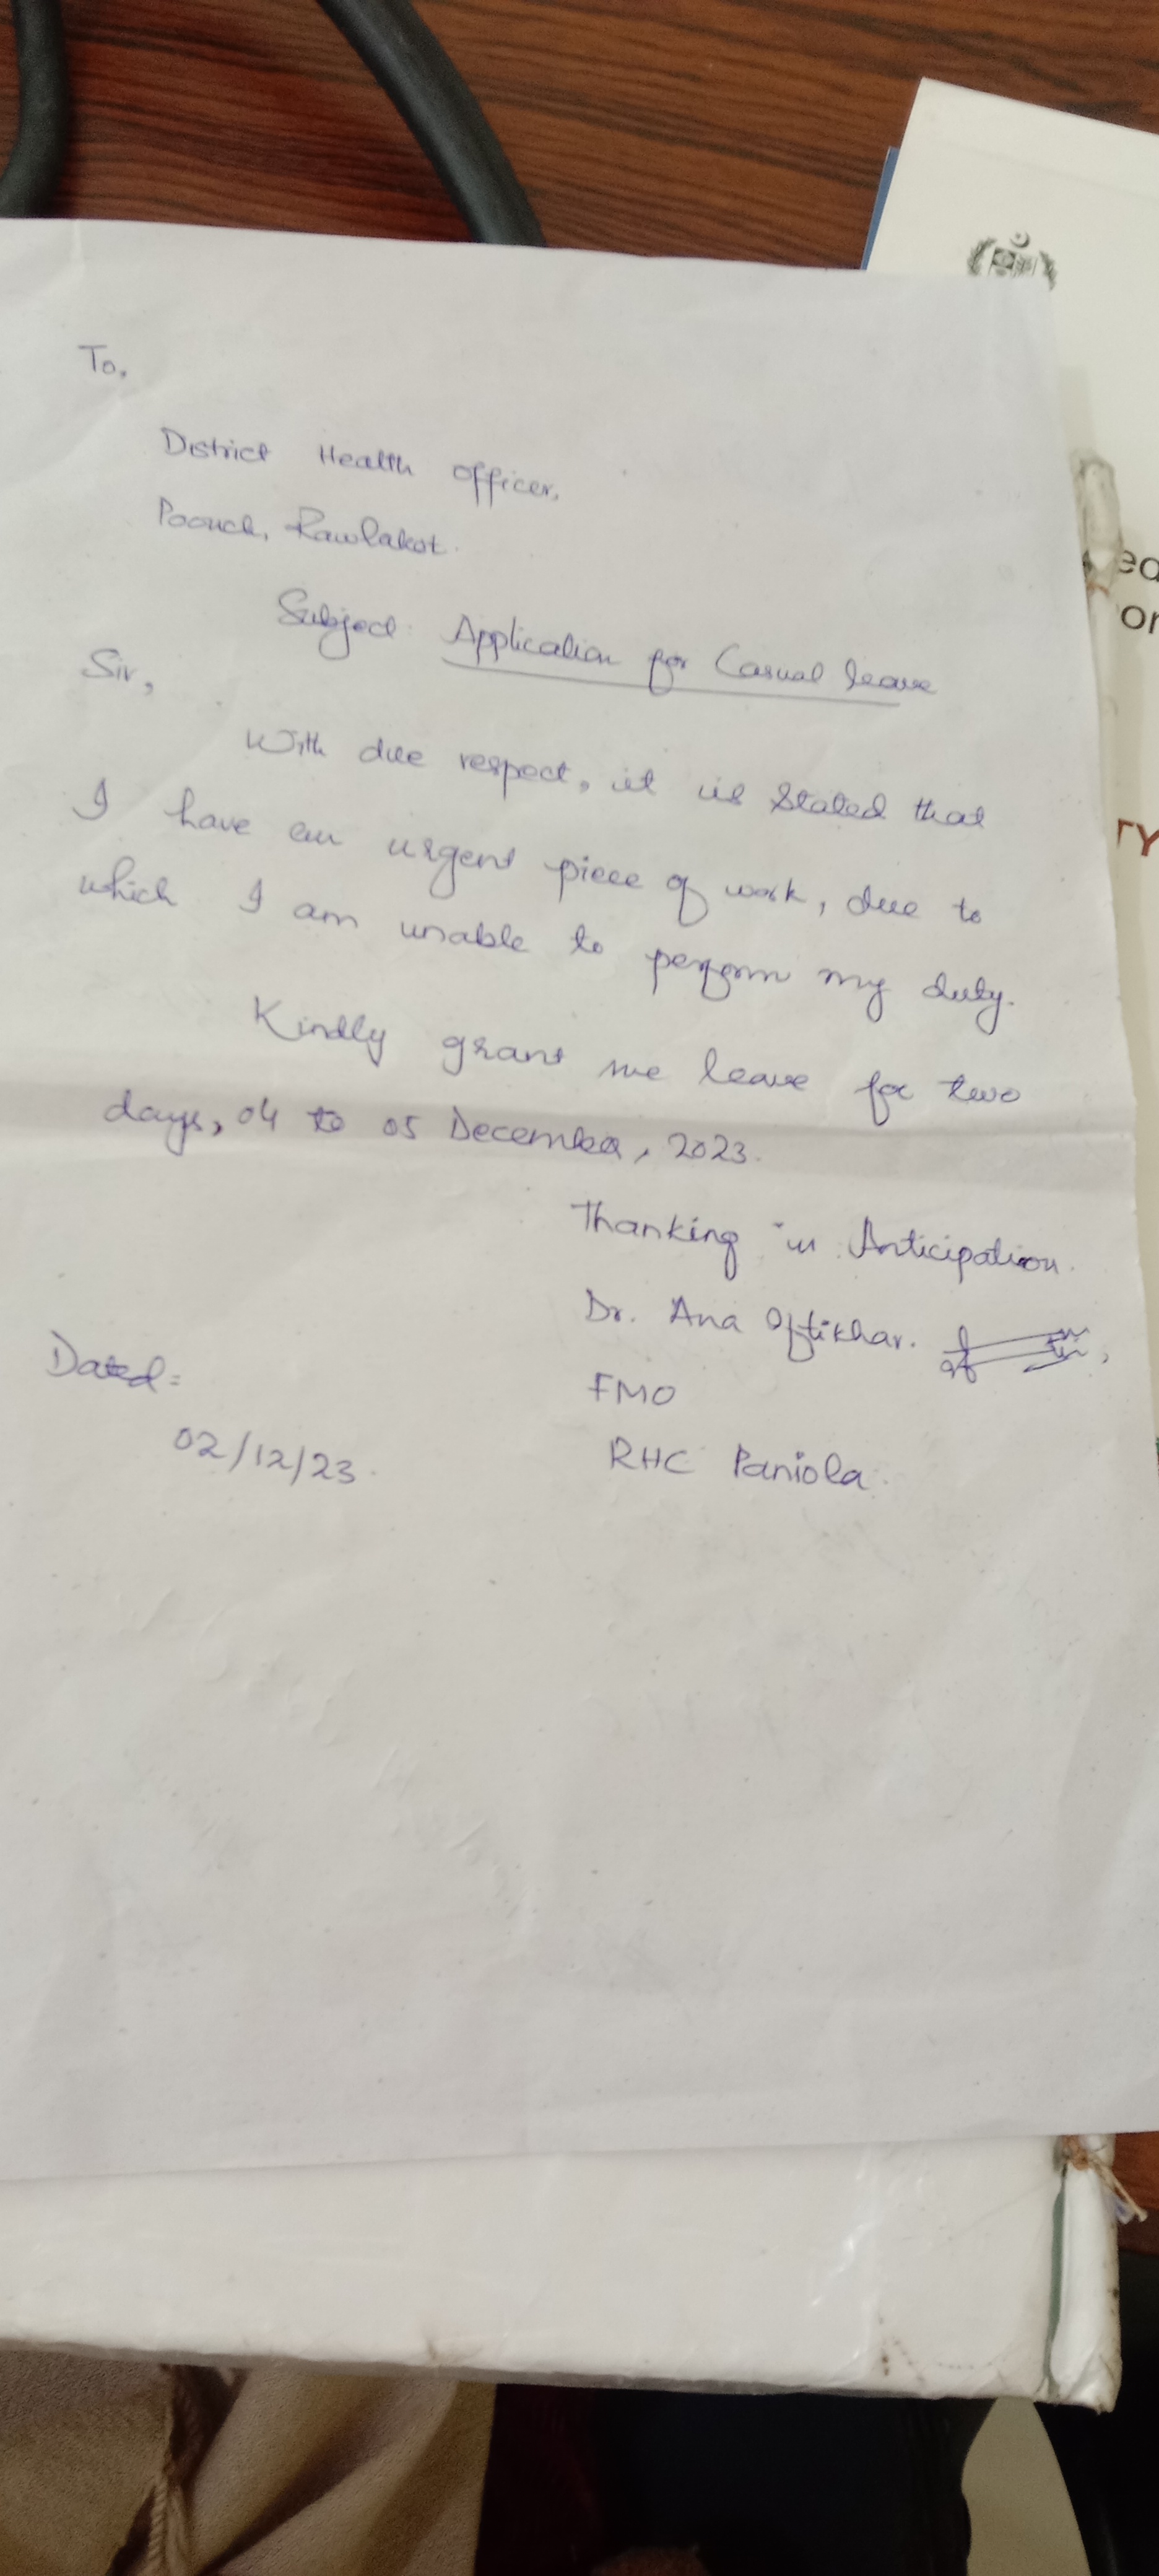 To,
District Health Officer,
Poonch, Rawlakot.
Subject: Application for Casual leave
Sir,
With due respect, it is stated that
I have an urgent piece of work, due to
which I am unable to perform my duty.
Kindly grant me leave for two
days, 04 to 05 December, 2023.
Thanking in Anticipation.
Dr. Ana Iftikhar.
FMO
RHC Paniola.
Dated:
02/12/23.
TY